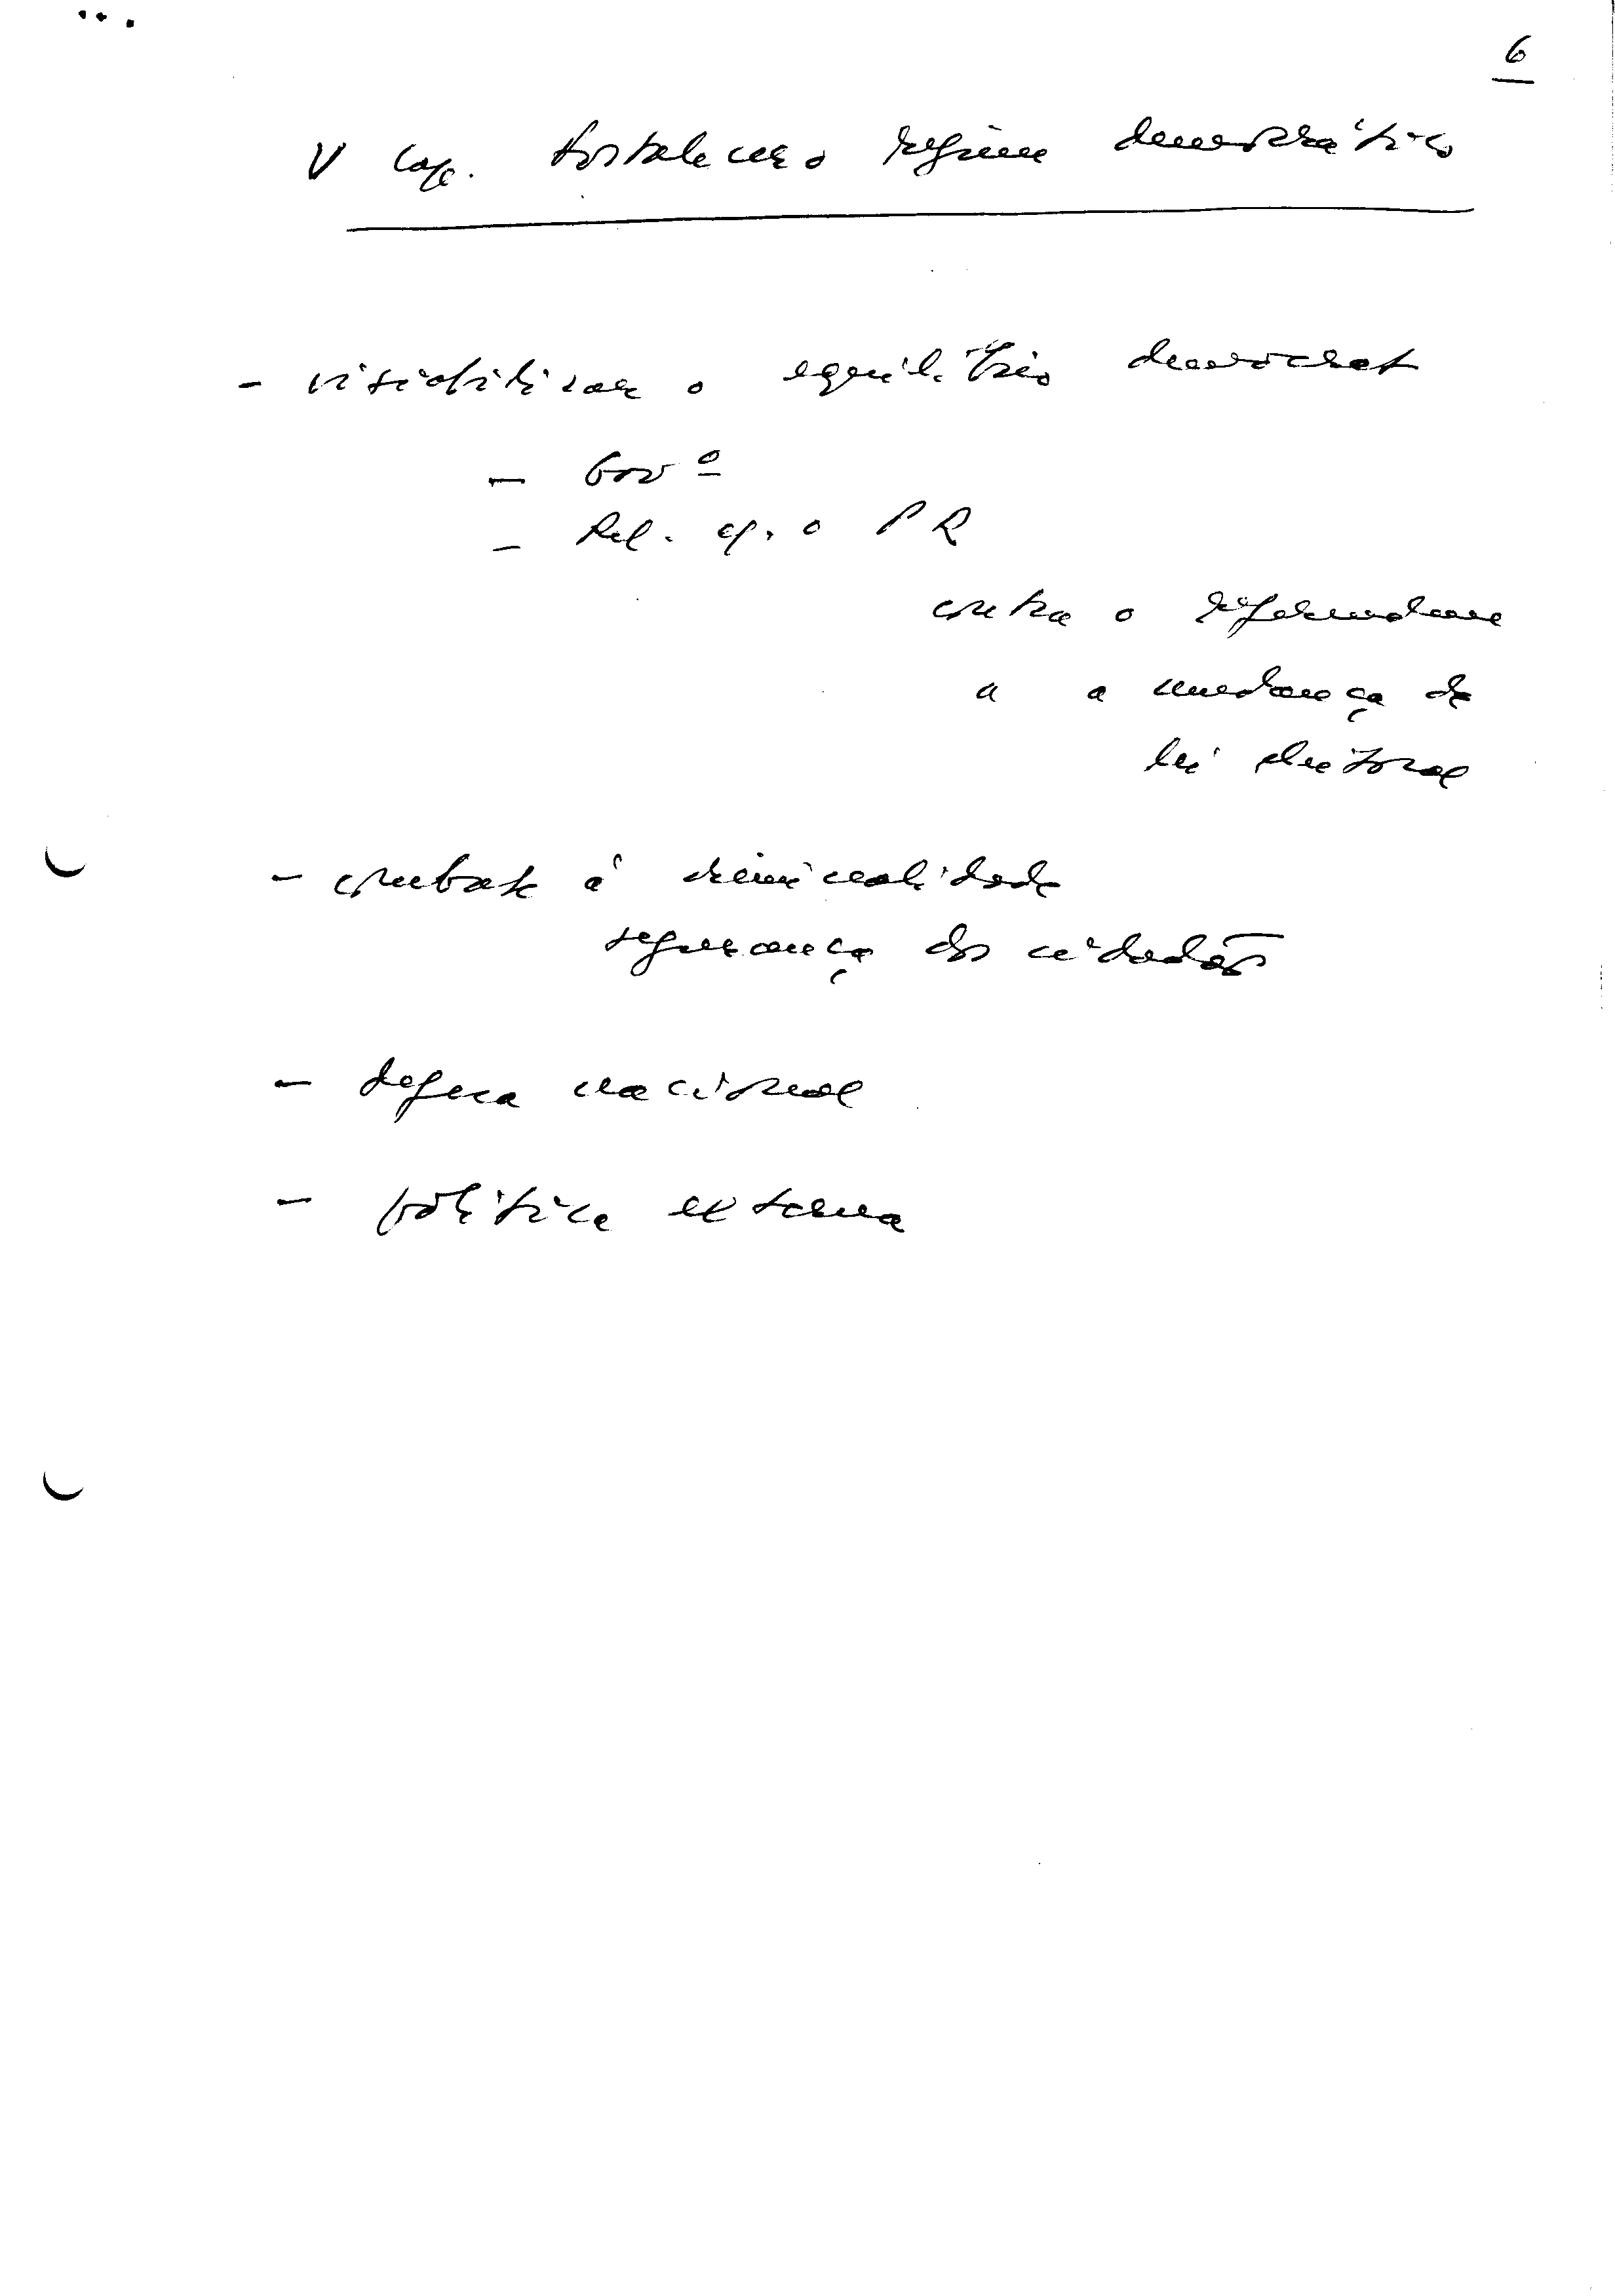 6
V Cap. Fortalecer o regime democrático
- o equilíbrio democrat
- Govº
- Rel. c/. o PR
contra o referendum
" a mudança da
lei eleitoral
- combate à criminalidade
segurança dos cidadãos
- defesa nacional
- política externa